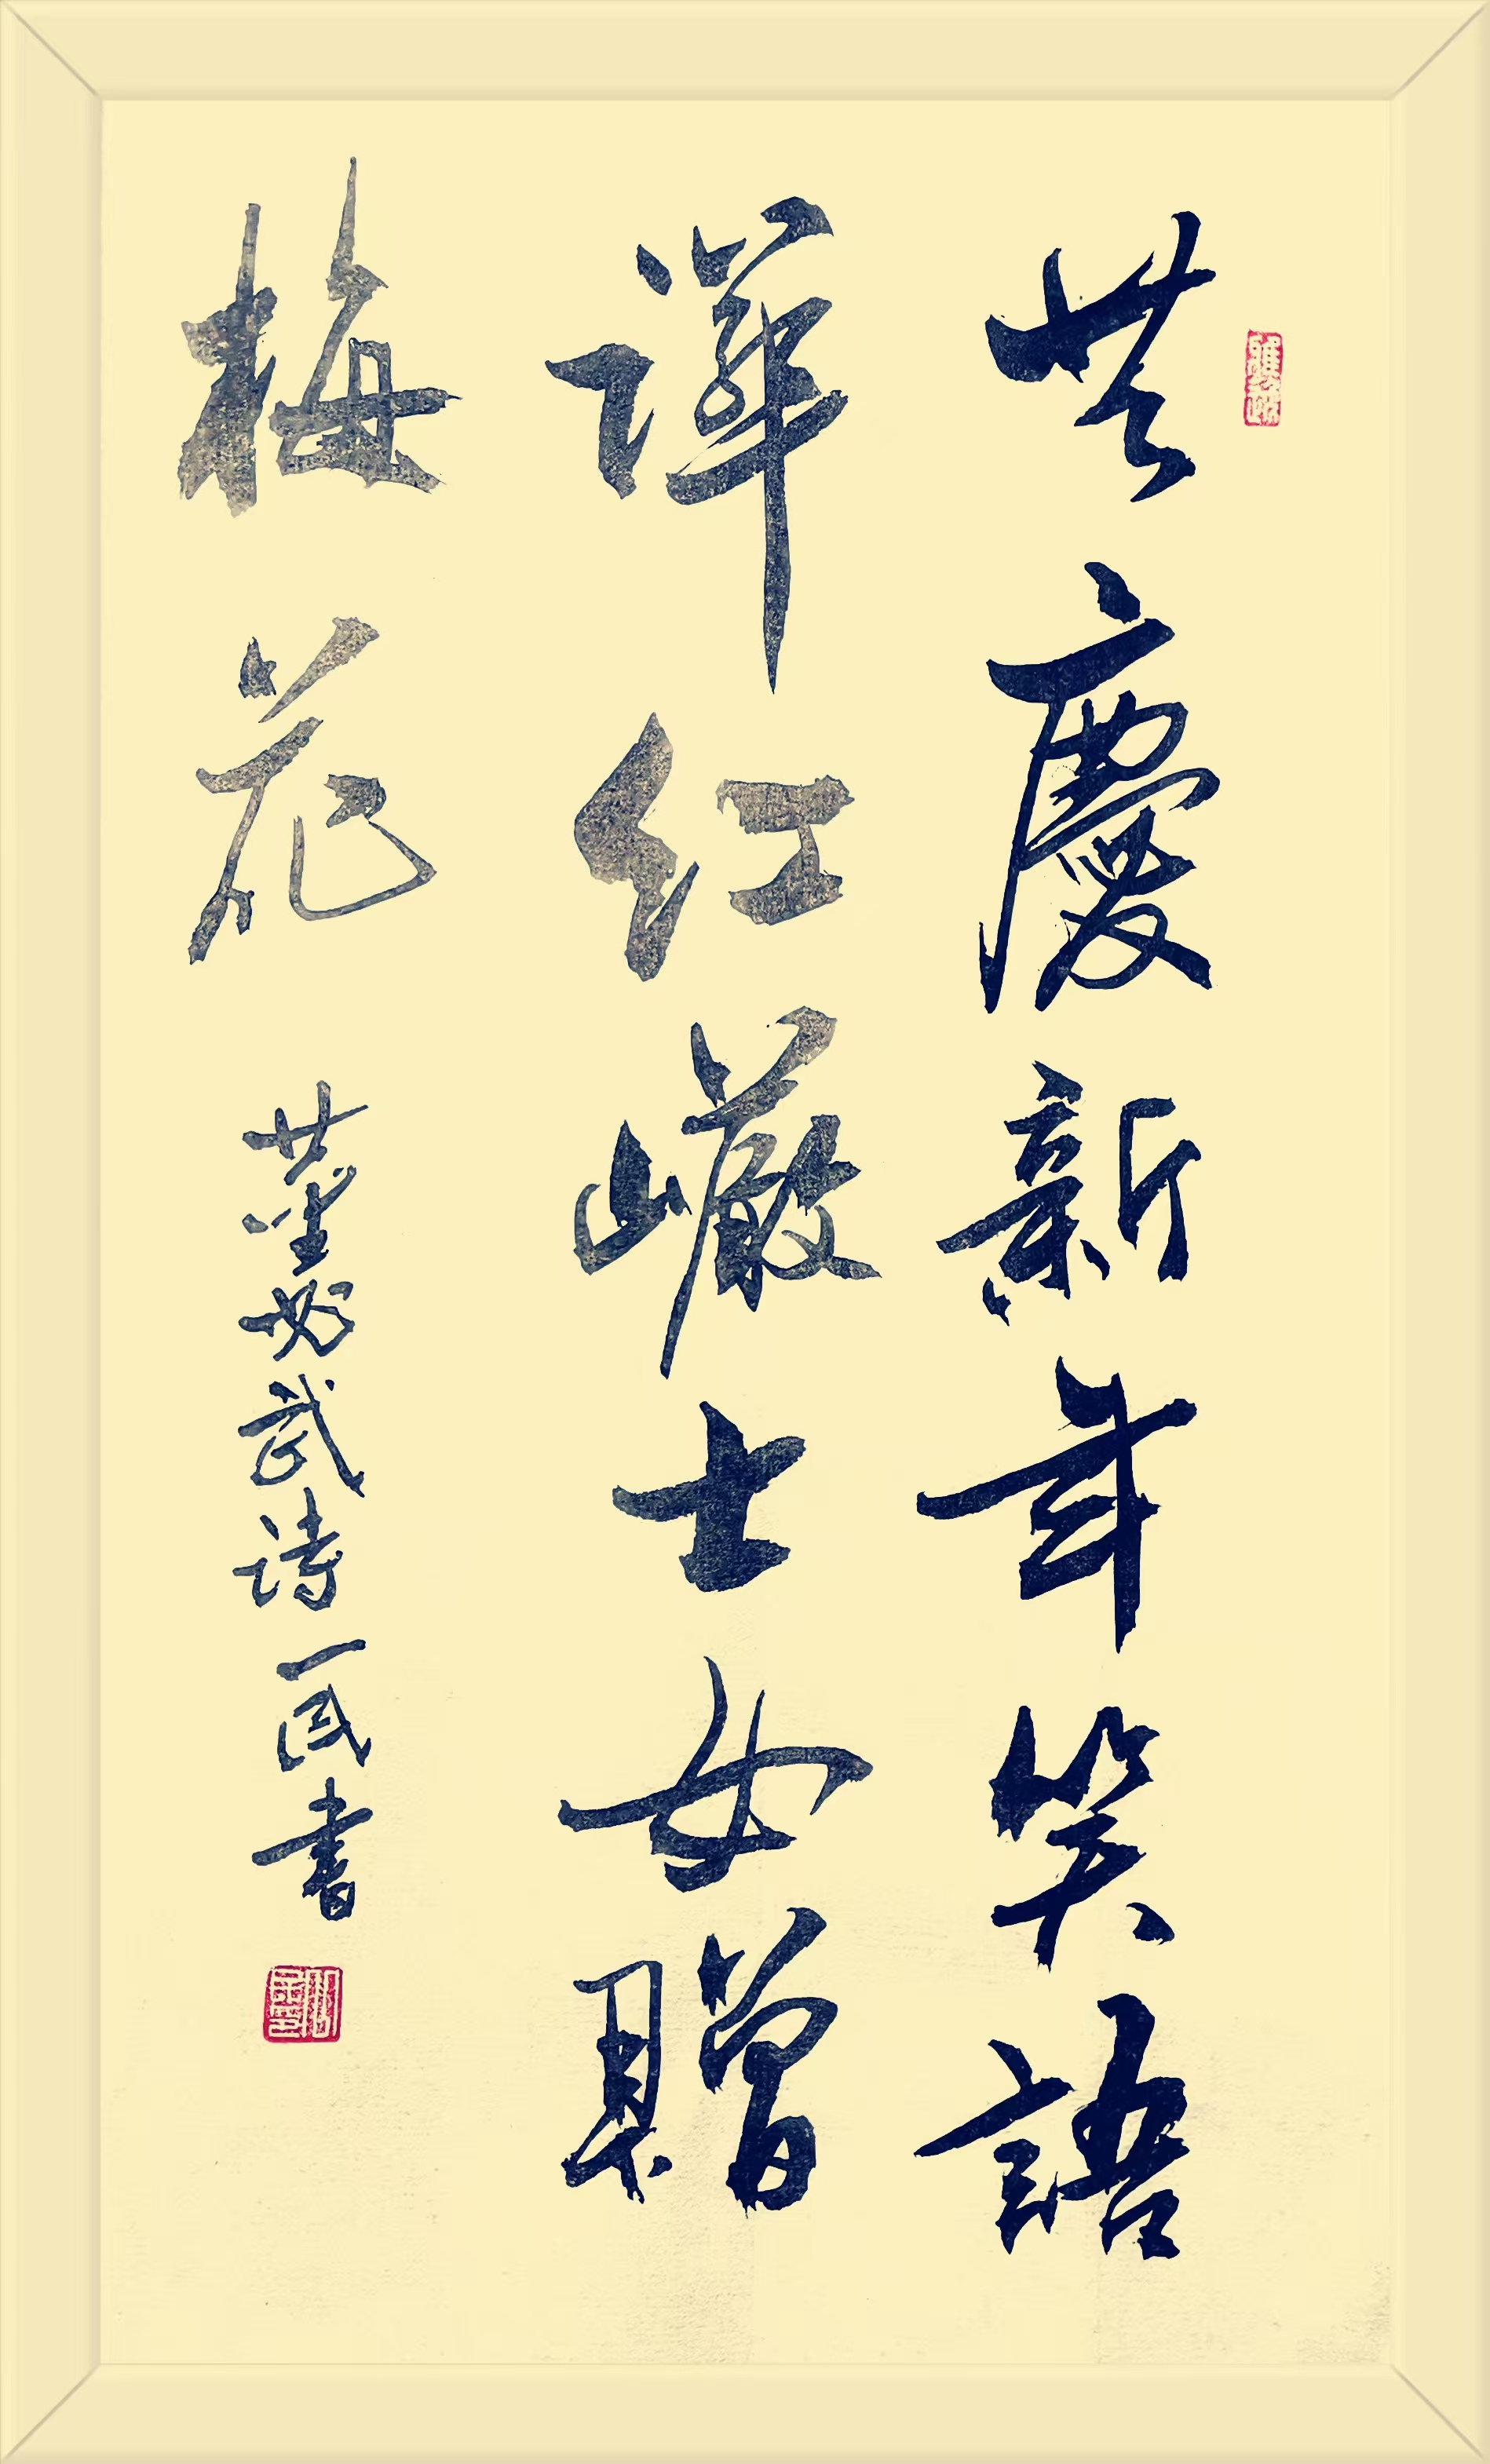 共慶新年笑語
譁红巖士女贈
梅花
董必武诗一民書